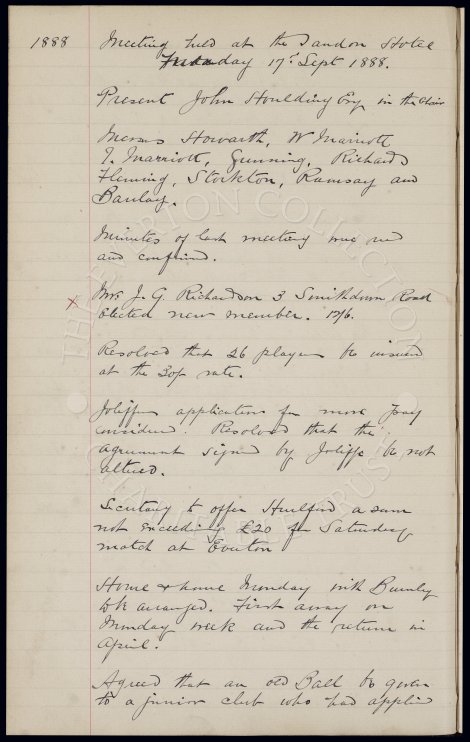 1888 Meeting held at the Sandon Hotel
Monday 17th Sept 1888.
Present John Houlding Esq in the Chair
Messrs Howarth, W Marriott
T. Marriott, Gunning, Richards
Fleming, Stockton, Ramsay and
Barclay.
Minutes of last meeting were read
and confirmed.
x Mr J. G. Richardson 3 Smithdown Road
elected new member. 10/6.
Resolved that 26 players be insured
at the 30/- rate.
Joliffes application for more pay
considered. Resolved that the
agreement signed by Joliffe be not
altered.
Secretary to offer Hurlford a sum
not exceeding £20 for Saturday
match at Everton
Home & home Monday with Burnley
to be arranged. First away on
Monday week and the return in
April.
Agreed that an old Ball be given
to a junior club who had applied
THE EVERTON COLLECTION
CHARITABLE TRUST